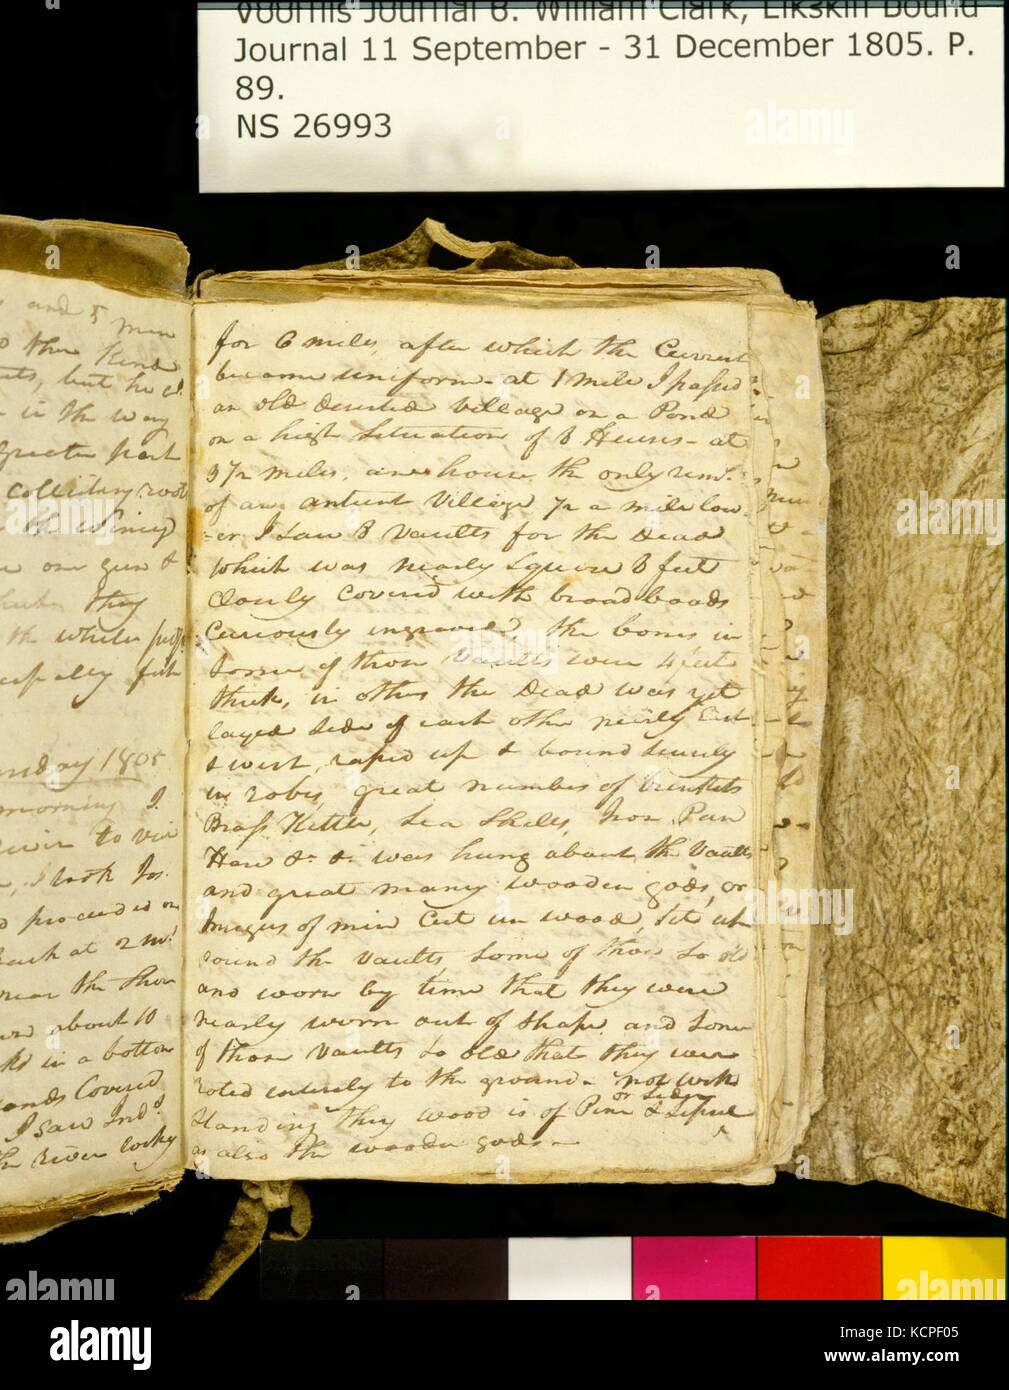 Voorhis Journal 8. William Clark, Elkskin Bound
Journal 11 September - 31 December 1805. P.
89.
NS 26993
and 5 men
the Kind
but he
in the way
Greater part
collecting root
the winey
one gun &
they
the whole
fish
Sunday 1805
morning I
river to vie
I took Jos.
proceeded on
at 2 m.
near the Shore
about 10
in a bottom
Covered
I saw Ind.s
the river
for 6 miles, after which the Current
became uniform - at 1 Mile I passed
an old deserted Village on a Pond
on a high Situation of 8 Houses - at
3 1/2 miles, one house the only rem.
of an antient Village 1/2 a mile low-
-er I Saw 8 Vaults for the Dead
which was nearly Square 8 feet
Closely Covered with broad boads
Curiously engraved, the bones in
Some of those Vaults wer 4 feet
thick, in others the Dead was yet
layed Side of each other nearly East
& west, raped up & bound Securely
in robes, great numbers of trinkets
Brass Kittle, Sea Shells, Iron, Pan
Hare &c. &c. was hung about the Vaults
and great many wooden gods, or
Images of men Cut in wood, Set up
round the Vaults, Some of those So old
and worn by time that they were
nearly worn out of Shape, and Some
of those Vaults So old that they were
roted entirely to the ground - not with
or Seder
standing they wood is of Pine &
as also the wooden gods -
alamy
Image ID: KCPF05
www.alamy.com